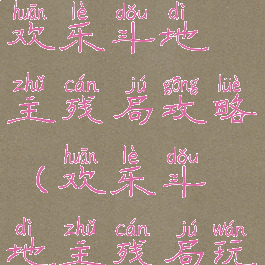 huān lè dǒu dì
欢乐斗地
zhǔ cán jú gōng lüè
主残局攻略
huān lè dǒu
(欢乐斗
dì zhǔ cán jú wán
地主残局玩